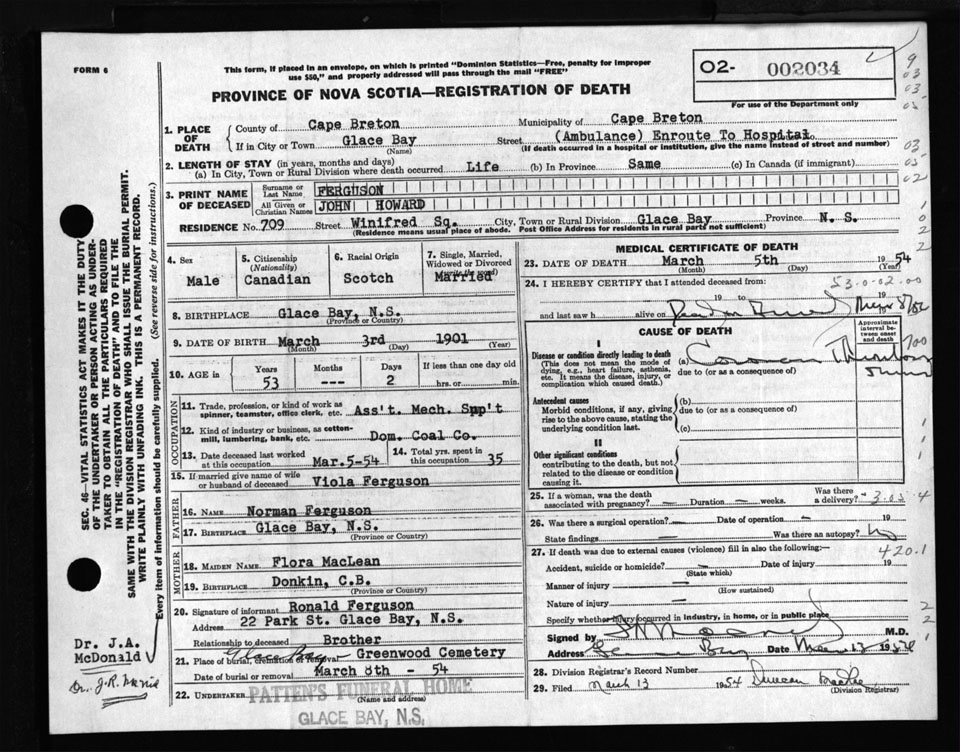 FORM 6
This form, if placed in an envelope, on which is printed "Dominion Statistics—Free, penalty for improper
use $50," and properly addressed will pass through the mail "FREE"
PROVINCE OF NOVA SCOTIA—REGISTRATION OF DEATH
02- 002034
For use of the Department only
1. PLACE OF DEATH
County of Cape Breton Municipality of Cape Breton
If in City or Town Glace Bay Street (Ambulance) Enroute To Hospital
(Name) (If death occurred in a hospital or institution, give the name instead of street and number)
2. LENGTH OF STAY (in years, months and days)
(a) In City, Town or Rural Division where death occurred Life (b) In Province Same (c) In Canada (if immigrant)
3. PRINT NAME OF DECEASED
Surname or Last Name FERGUSON
All Given or Christian Names JOHN HOWARD
RESIDENCE No. 709 Street Winifred Sq. City, Town or Rural Division Glace Bay Province N. S.
(Residence means usual place of abode. Post Office Address for residents in rural parts not sufficient)
4. Sex
Male
5. Citizenship
(Nationality)
Canadian
6. Racial Origin
Scotch
7. Single, Married,
Widowed or Divorced
(write the word)
Married
8. BIRTHPLACE Glace Bay, N.S.
(Province or Country)
9. DATE OF BIRTH March 3rd 1901
(Month) (Day) (Year)
10. AGE in
Years Months Days If less than one day old
53 --- 2 hrs. or min.
OCCUPATION
11. Trade, profession, or kind of work as
spinner, teamster, office clerk, etc. Ass't. Mech. Sup't
12. Kind of industry or business, as cotton-
mill, lumbering, bank, etc. Dom. Coal Co.
13. Date deceased last worked
at this occupation Mar.5-54
14. Total yrs. spent in
this occupation 35
15. If married give name of wife
or husband of deceased Viola Ferguson
FATHER
16. NAME Norman Ferguson
17. BIRTHPLACE Glace Bay, N.S.
(Province or Country)
MOTHER
18. MAIDEN NAME Flora MacLean
19. BIRTHPLACE Donkin, C.B.
(Province or Country)
20. Signature of informant Ronald Ferguson
Address 22 Park St. Glace Bay, N.S.
Relationship to deceased Brother
21. Place of burial, cremation or removal Glace Bay Greenwood Cemetery
Date of burial or removal March 8th - 54
22. UNDERTAKER PATTEN'S FUNERAL HOME
(Name and address)
GLACE BAY, N.S.
MEDICAL CERTIFICATE OF DEATH
23. DATE OF DEATH March 5th 1954
(Month) (Day) (Year)
24. I HEREBY CERTIFY that I attended deceased from:
53-0-02-00
19 to 19
and last saw h alive on
CAUSE OF DEATH
Approximate interval between onset and death
I
Disease or condition directly leading to death
(This does not mean the mode of
dying, e.g., heart failure, asthenia,
etc. It means the disease, injury, or
complication which caused death.)
(a) Coronary Thrombosis
due to (or as a consequence of)
Antecedent causes
Morbid conditions, if any, giving
rise to the above cause, stating the
underlying condition last.
(b)
due to (or as a consequence of)
(c)
II
Other significant conditions
contributing to the death, but not
related to the disease or condition
causing it.
25. If a woman, was the death
associated with pregnancy? — Duration — weeks. Was there
a delivery?
26. Was there a surgical operation? — Date of operation — 19
State findings — Was there an autopsy? No
27. If death was due to external causes (violence) fill in also the following:—
420.1
Accident, suicide or homicide? — Date of injury 19
(State which)
Manner of injury —
(How sustained)
Nature of injury —
Specify whether injury occurred in industry, in home, or in public place
Signed by M.D.
Address Glace Bay Date March 12 1954
28. Division Registrar's Record Number
29. Filed March 13 1954 Duncan
(Division Registrar)
SEC. 46—VITAL STATISTICS ACT MAKES IT THE DUTY
OF THE UNDERTAKER OR PERSON ACTING AS UNDER-
TAKER TO OBTAIN ALL THE PARTICULARS REQUIRED
IN THE "REGISTRATION OF DEATH" AND TO FILE THE
SAME WITH THE DIVISION REGISTRAR WHO SHALL ISSUE THE BURIAL PERMIT.
WRITE PLAINLY WITH UNFADING INK. THIS IS A PERMANENT RECORD.
Every item of information should be carefully supplied. (See reverse side for instructions.)
Dr. J.A.
McDonald
Dr. J.R. McNeil